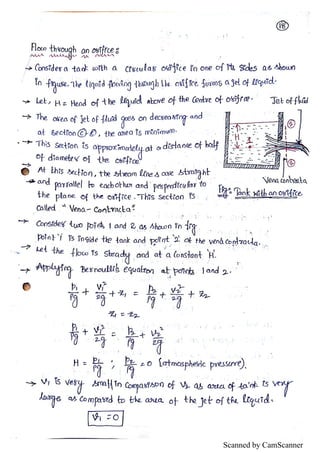 18
Flow through an orifice:
→ Consider a tank with a circular orifice in one of its sides as shown
in figure. The liquid flowing through the orifice forms a jet of liquid.
→ Let, H = Head of the liquid above of the centre of orifice.
Jet of fluid
→ The area of jet of fluid goes on decreasing and
at section ©-©, the area is minimum.
→ This section is approximately at a distance of half
of diameter of the orifice
→ At this section, the stream lines are straight
Vena contracta
→ and parallel to each other and perpendicular to
the plane of the orifice. This section is
Fig: Tank with an orifice
called "Vena-Contracta".
→ Consider two points 1 and 2 as shown in fig
point '1' is inside the tank and point '2' at the vena contracta.
→ Let the flow is steady and at a constant 'H'.
→ Applying Bernoullis equation at points 1 and 2.
P₁/ρg + V₁²/2g + z₁ = P₂/ρg + V₂²/2g + z₂
z₁ = z₂
P₁/ρg + V₁²/2g = P₂/ρg + V₂²/2g
H = P₁/ρg ; P₂/ρg = 0 (atmospheric pressure).
→ V₁ is very small in comparison of V₂ as area of tank is very
large as compared to the area of the jet of the liquid.
V₁ = 0
Scanned by CamScanner